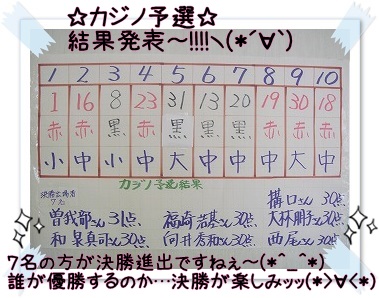 ☆カジノ予選☆
結果発表～!!!!ヽ(*´∀`)
1 2 3 4 5 6 7 8 9 10
1 16 8 23 31 13 20 19 30 18
赤 赤 黒 赤 黒 黒 黒 赤 赤 赤
小 中 小 中 大 中 中 中 大 中
カジノ予選結果
決勝進出者
7名
溝口さん 30点
曽我部さん 31点 福崎浩基さん 30点 大林朋子さん 30点
和泉真司さん 30点 向井秀和さん 30点 西尾さん 30点
7名の方が決勝進出ですねぇ～(*^_^*)
誰が優勝するのか…決勝が楽しみッッ(*>∀<*)